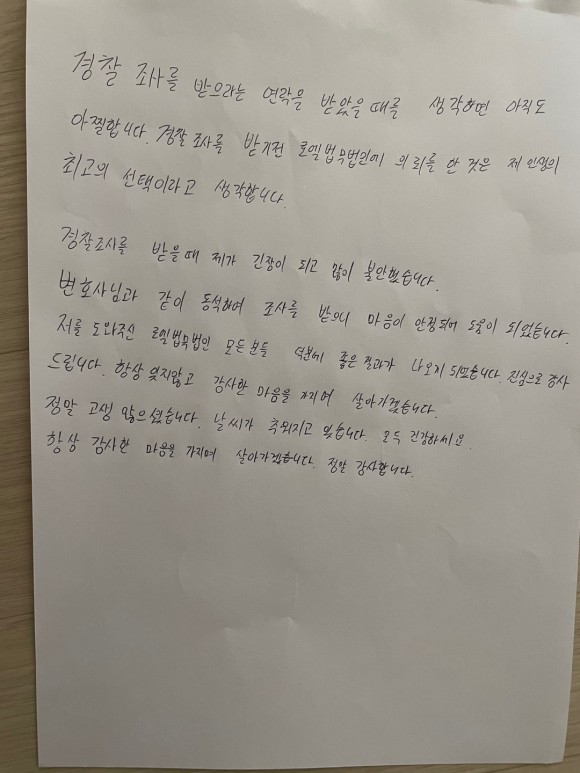 경찰 조사를 받으라는 연락을 받았을때를 생각하면 아직도
아찔합니다. 경찰조사를 받기전 로엘법무법인에 의뢰를 한 것은 제 인생의
최고의 선택이라고 생각합니다.
경찰조사를 받을때 제가 긴장이 되고 많이 불안했습니다.
변호사님과 같이 동석하여 조사를 받으니 마음이 안정되어 도움이 되었습니다.
저를 도와주신 로엘법무법인 모든분들 덕분에 좋은 결과가 나오게 되었습니다. 진심으로 감사
드립니다. 항상 잊지않고 감사한 마음을 가지며 살아가겠습니다.
정말 고생 많으셨습니다. 날씨가 추워지고 있습니다. 모두 건강하세요.
항상 감사한 마음을 가지며 살아가겠습니다. 정말 감사합니다.